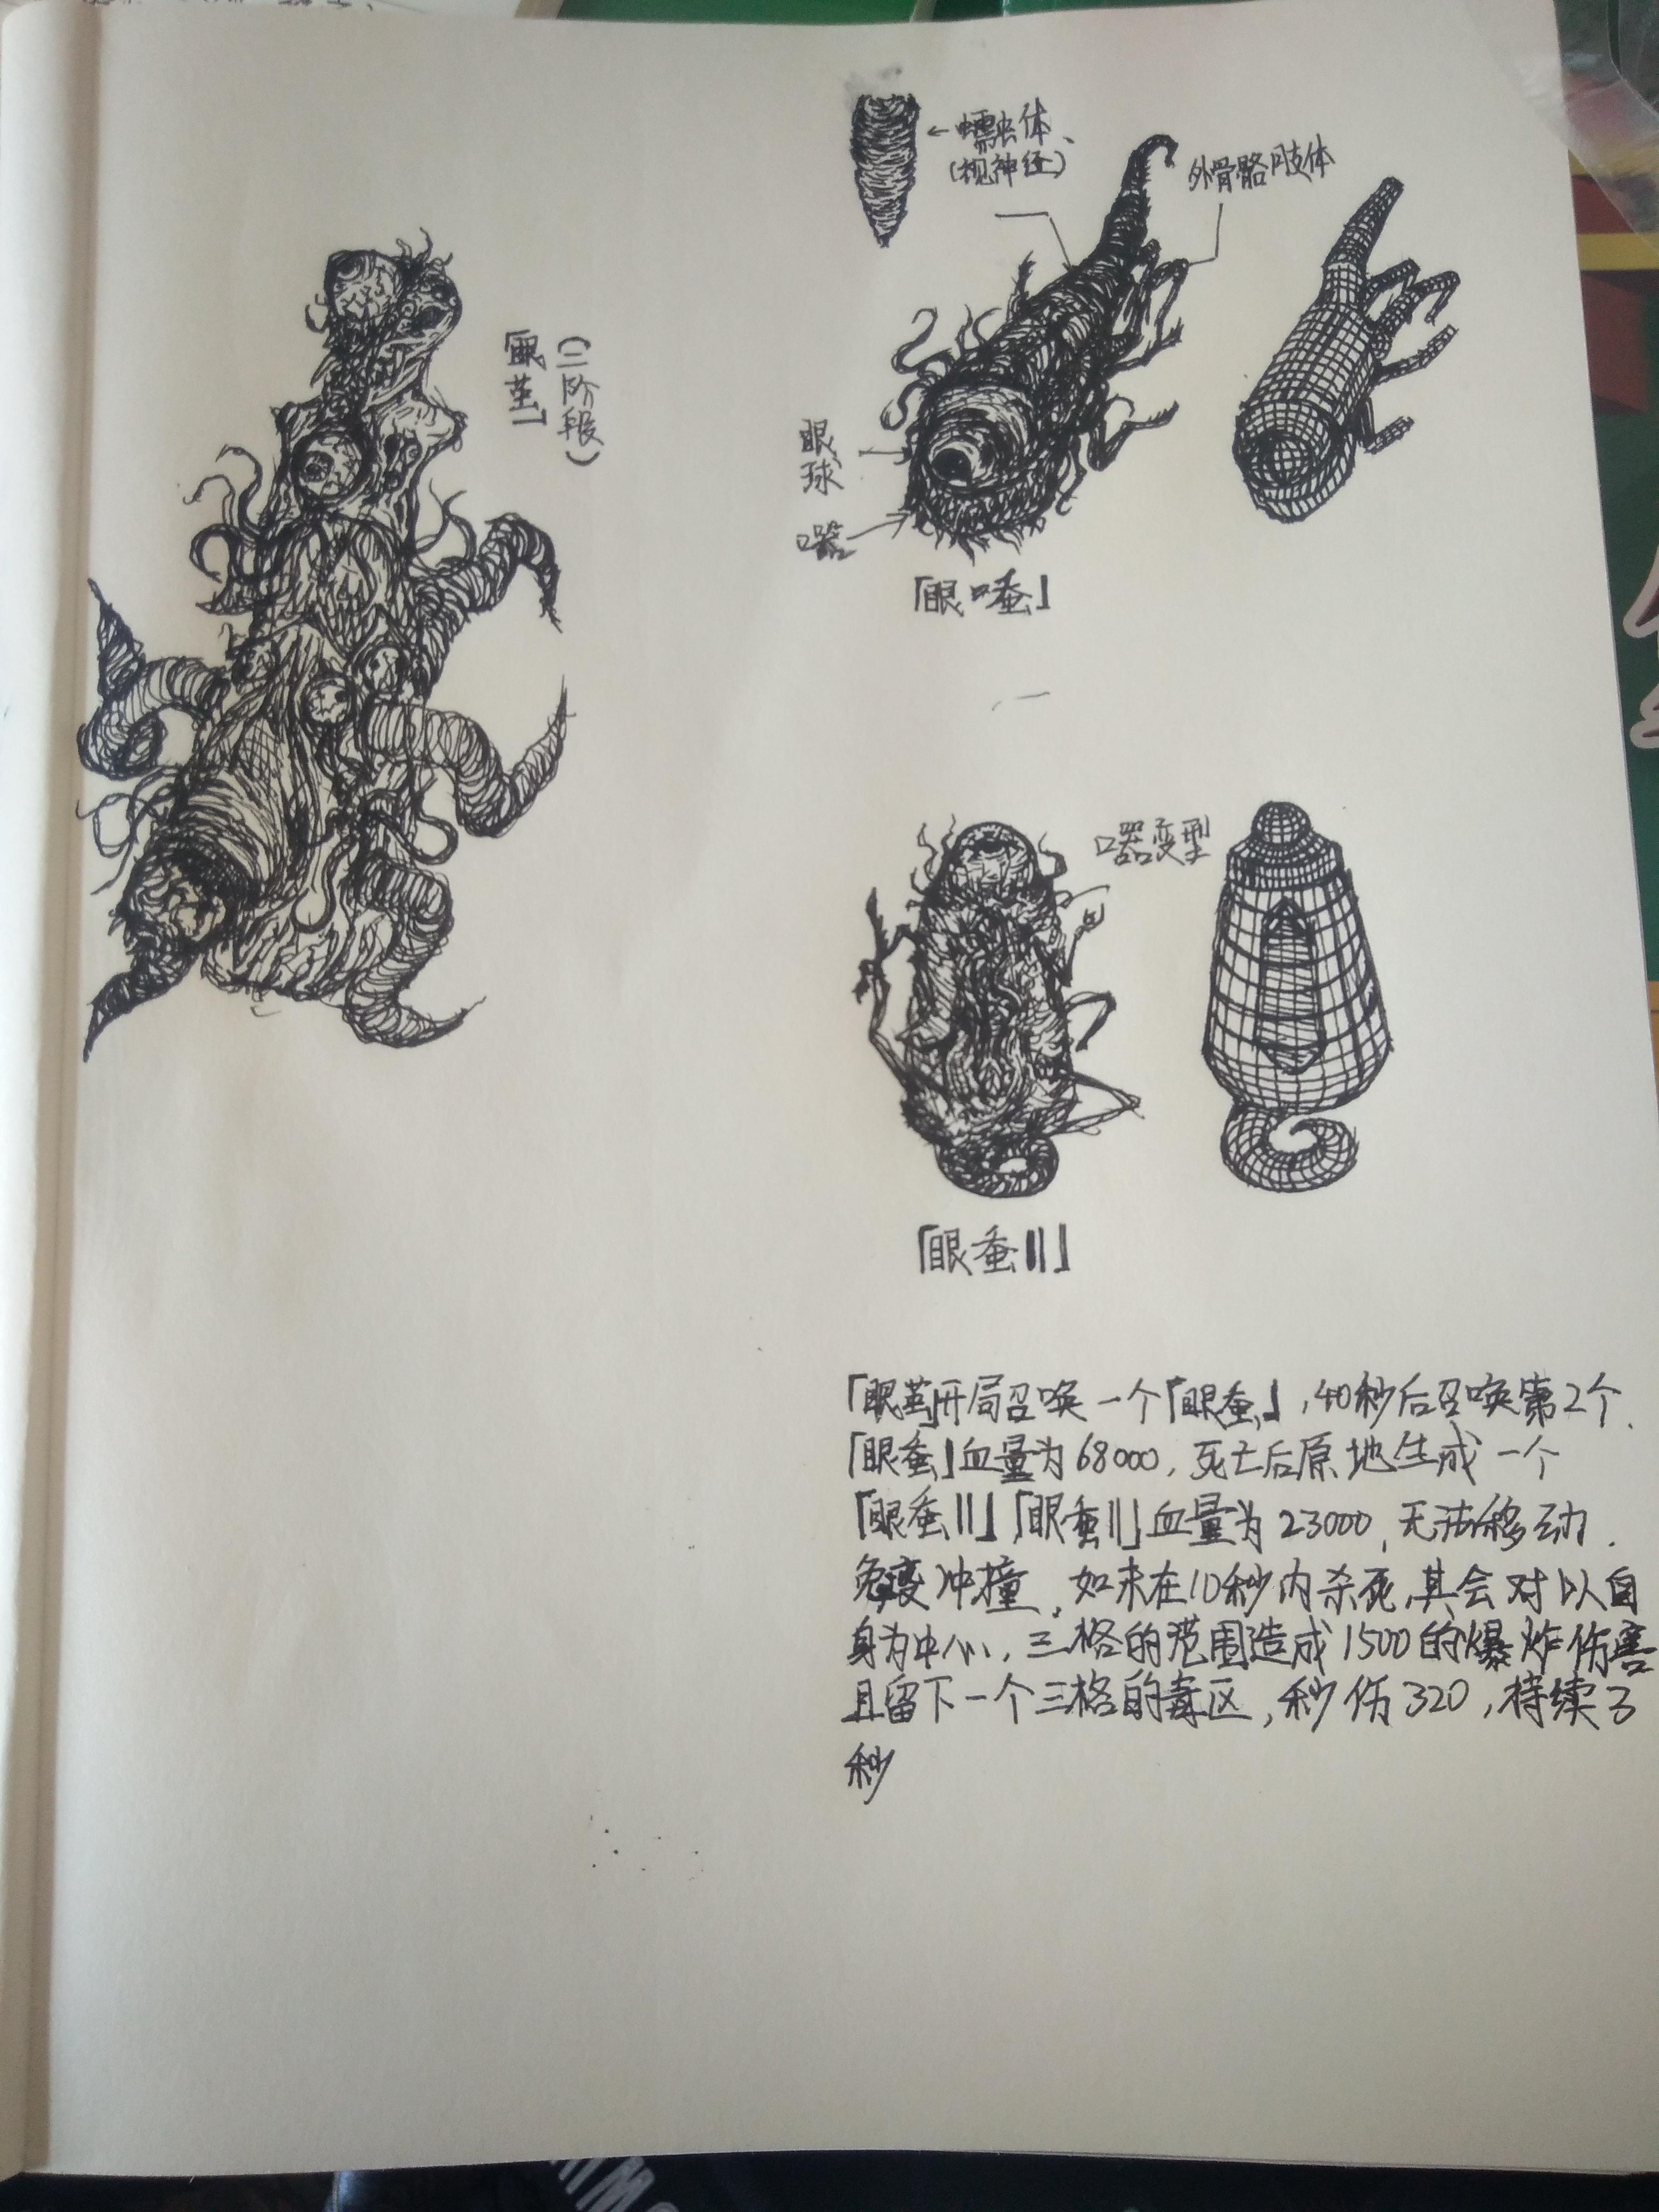 「眼茧」
(二阶段)
←蠕虫体、
(视神经)
外骨骼肢体
眼球
口器
「眼蚕」
口器变型
「眼蚕II」
「眼茧」开局召唤一个「眼蚕」,40秒后召唤第2个.
「眼蚕」血量为68000,死亡后原地生成一个
「眼蚕II」「眼蚕II」血量为23000,无法移动.
免疫冲撞,如未在10秒内杀死,其会对以自
身为中心,三格的范围造成1500的爆炸伤害
且留下一个三格的毒区,秒伤320,持续3
秒